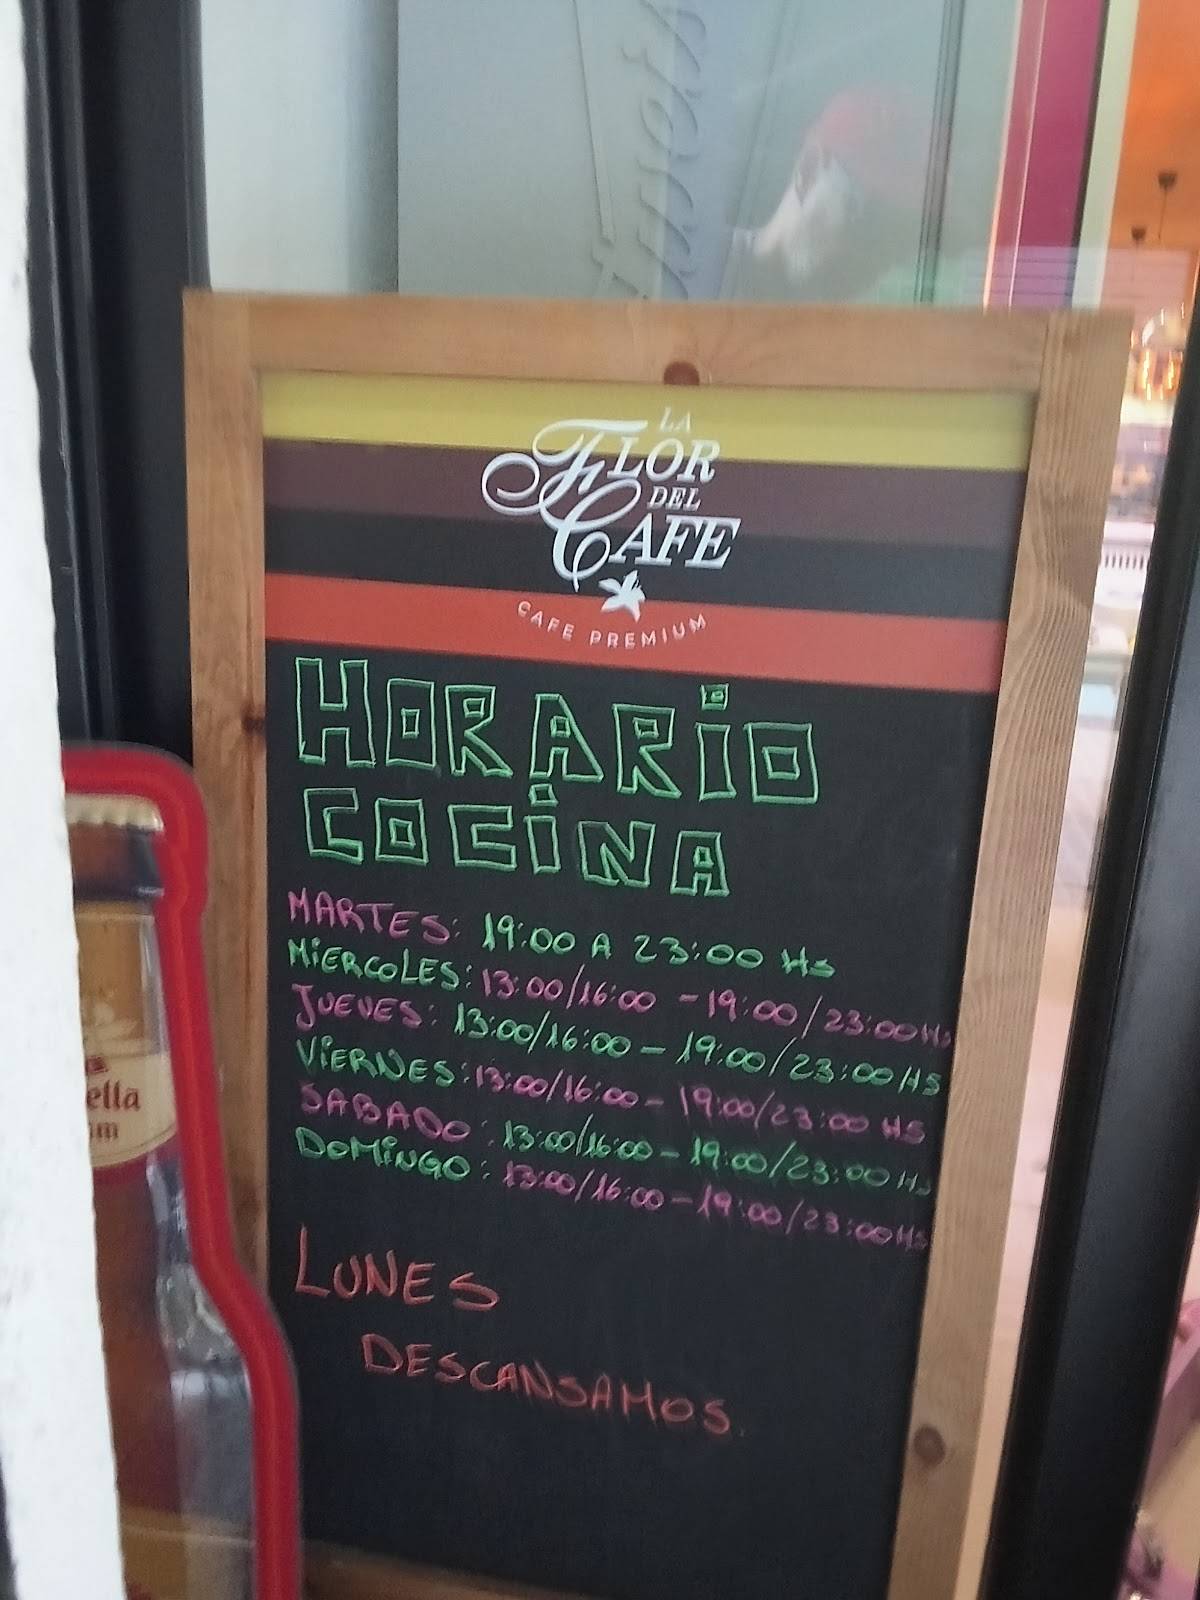 LA
FLOR
DEL
CAFE
CAFE PREMIUM
HORARIO
COCINA
MARTES: 19:00 A 23:00 Hs
MiERCOLES: 13:00/16:00 - 19:00/23:00 Hs
JUEVES: 13:00/16:00 - 19:00/23:00 HS
ViERNES: 13:00/16:00 - 19:00/23:00 HS
SABADO: 13:00/16:00 - 19:00/23:00 Hs
DOMiNGO: 13:00/16:00 - 19:00/23:00 Hs
LUNES
DESCANSAMOS.
ella
mm